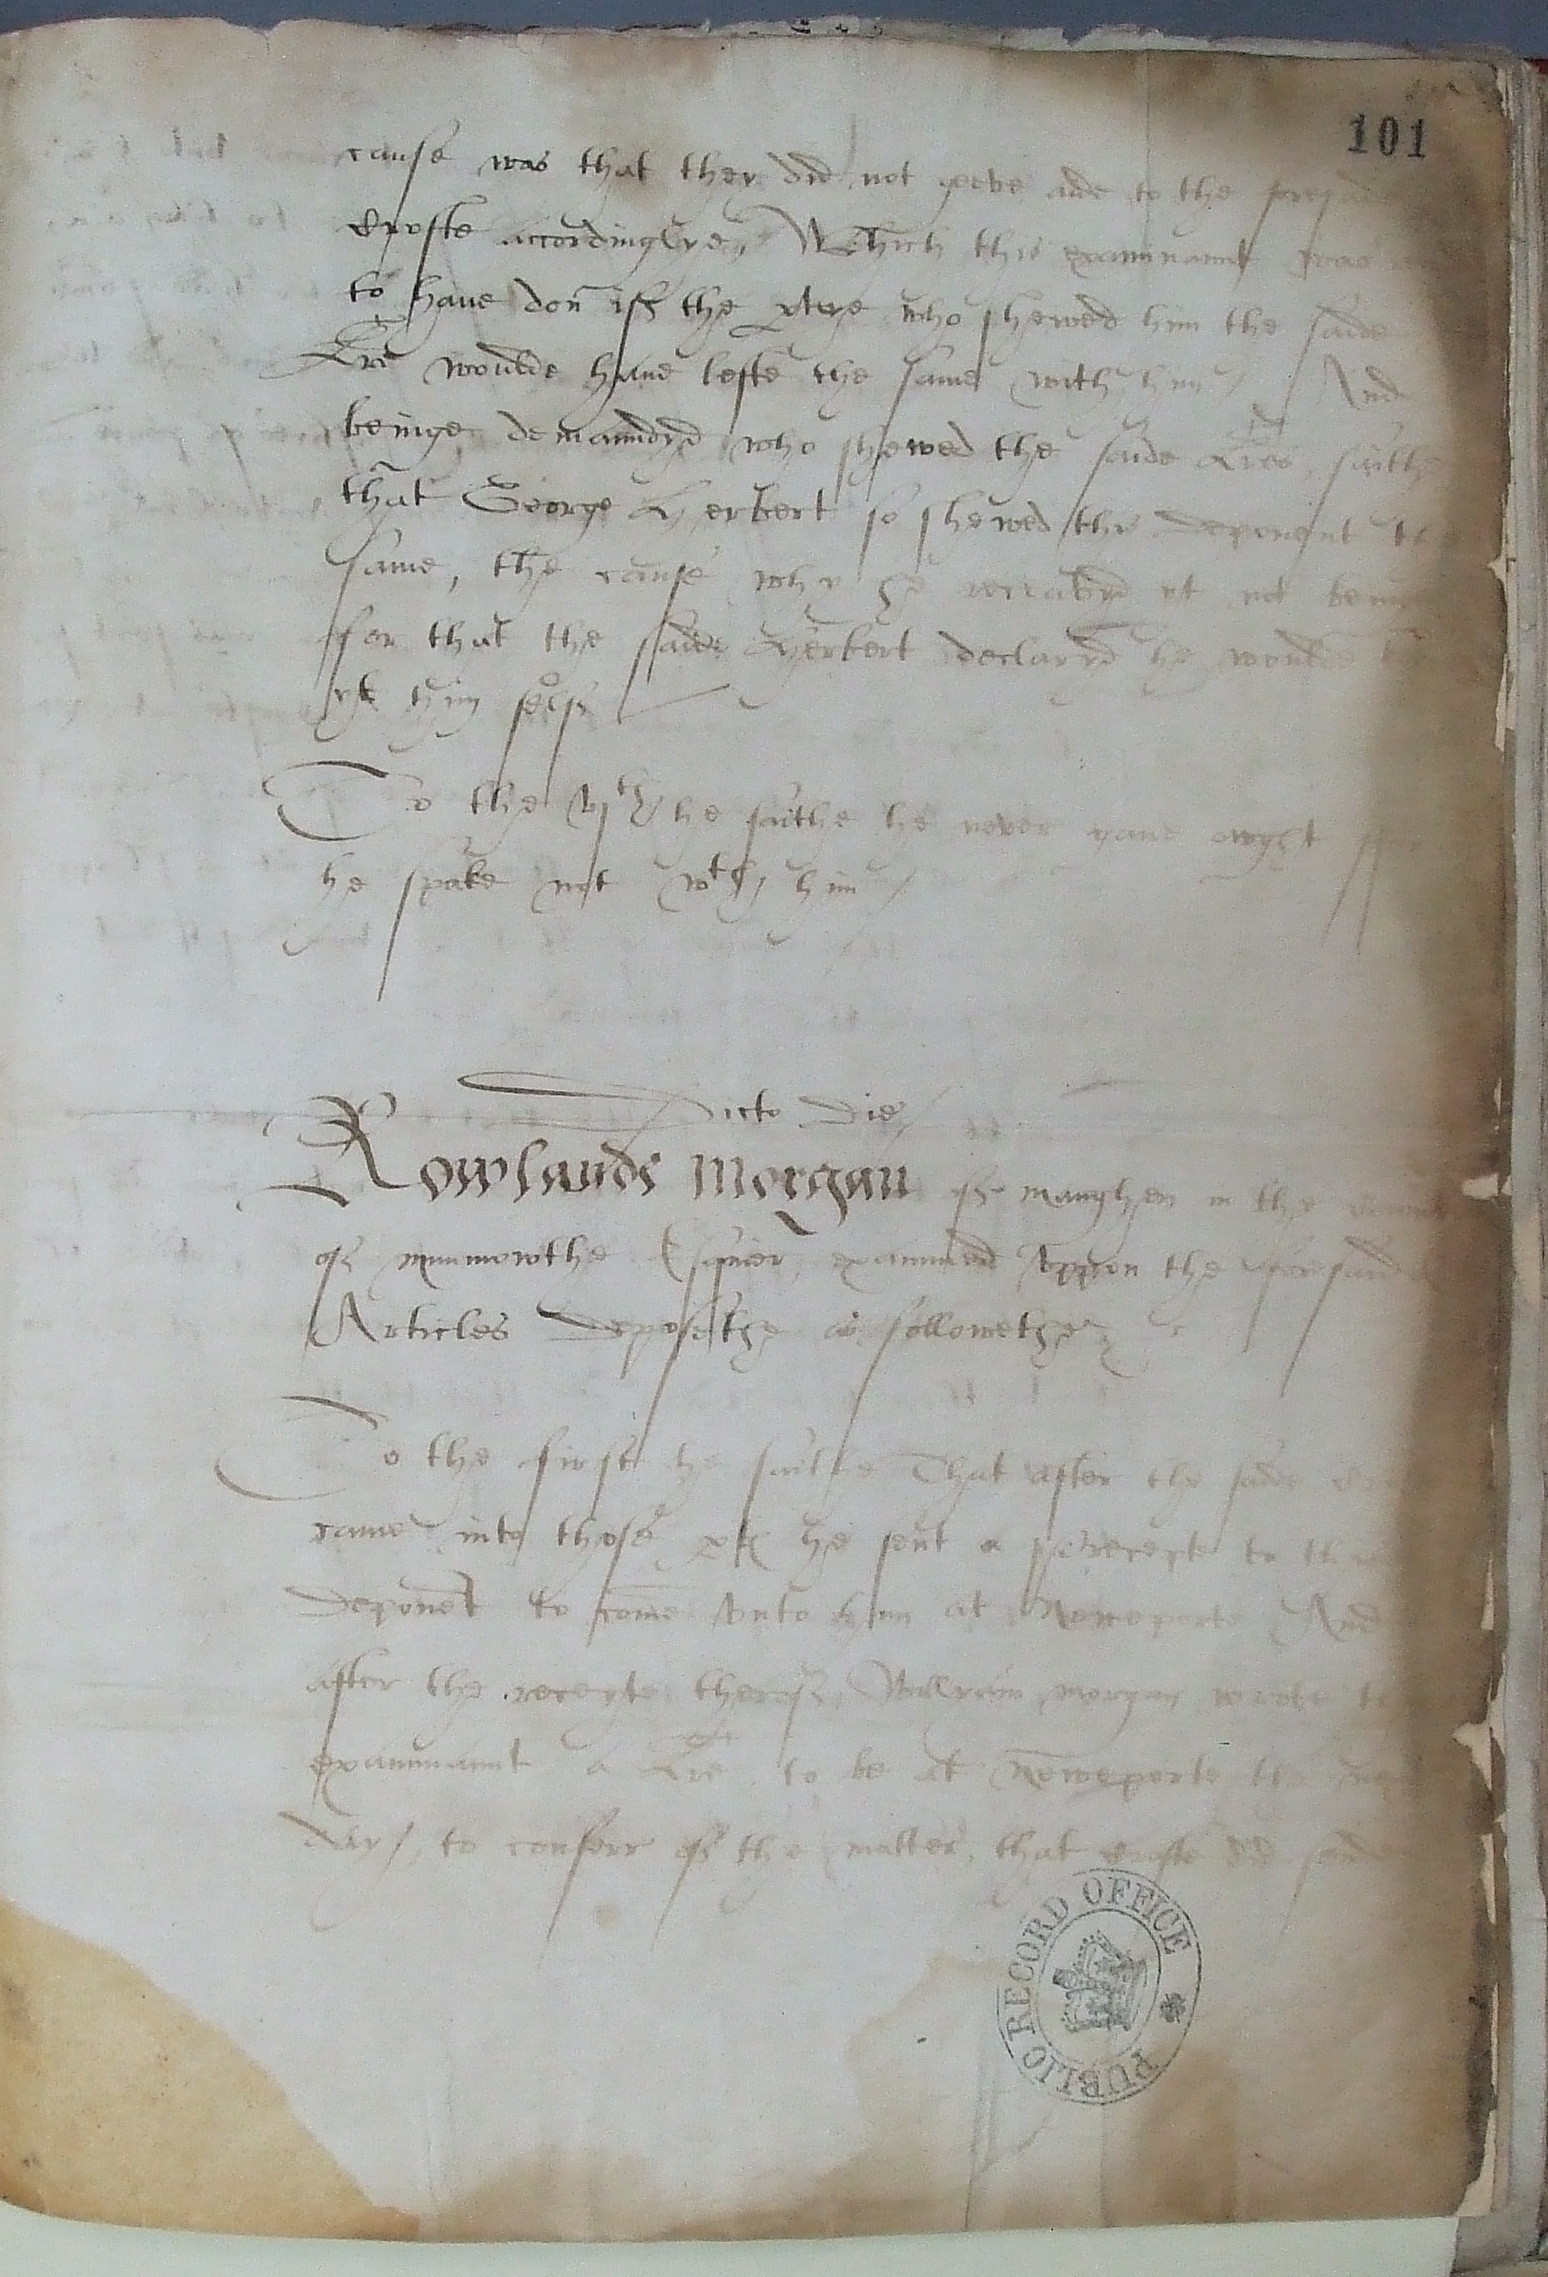 101
cause was that they did not geve ade to the
Crofte accordinglye, Which this examinaunt was
to have don if the ptye who shewed him the saide
Lre woulde have lefte the same with him / And
beinge demaunded who shewed the saide Lres, saithe
that George Herbert so shewed this deponent
same, the cause why he receaved yt not
for that the saide Herbert declared he woulde
yt him self
To the vjth he saithe he never gave
he spake not wth him /
Dicto Die
Rowlande Morgan of maughen in the
of munmowthe Esquier, examined uppon the foresaid
Articles deposethe as followethe
To the first he saithe That after the saide
came into those ptes he sent a precepte to
deponent to come unto him at Neweporte And
after the recepte therof, Willyam morgan wrote
examinaunt a Lre to be at Neweporte the
day, to conferr of the matter, that crofte did
PUBLIC RECORD OFFICE